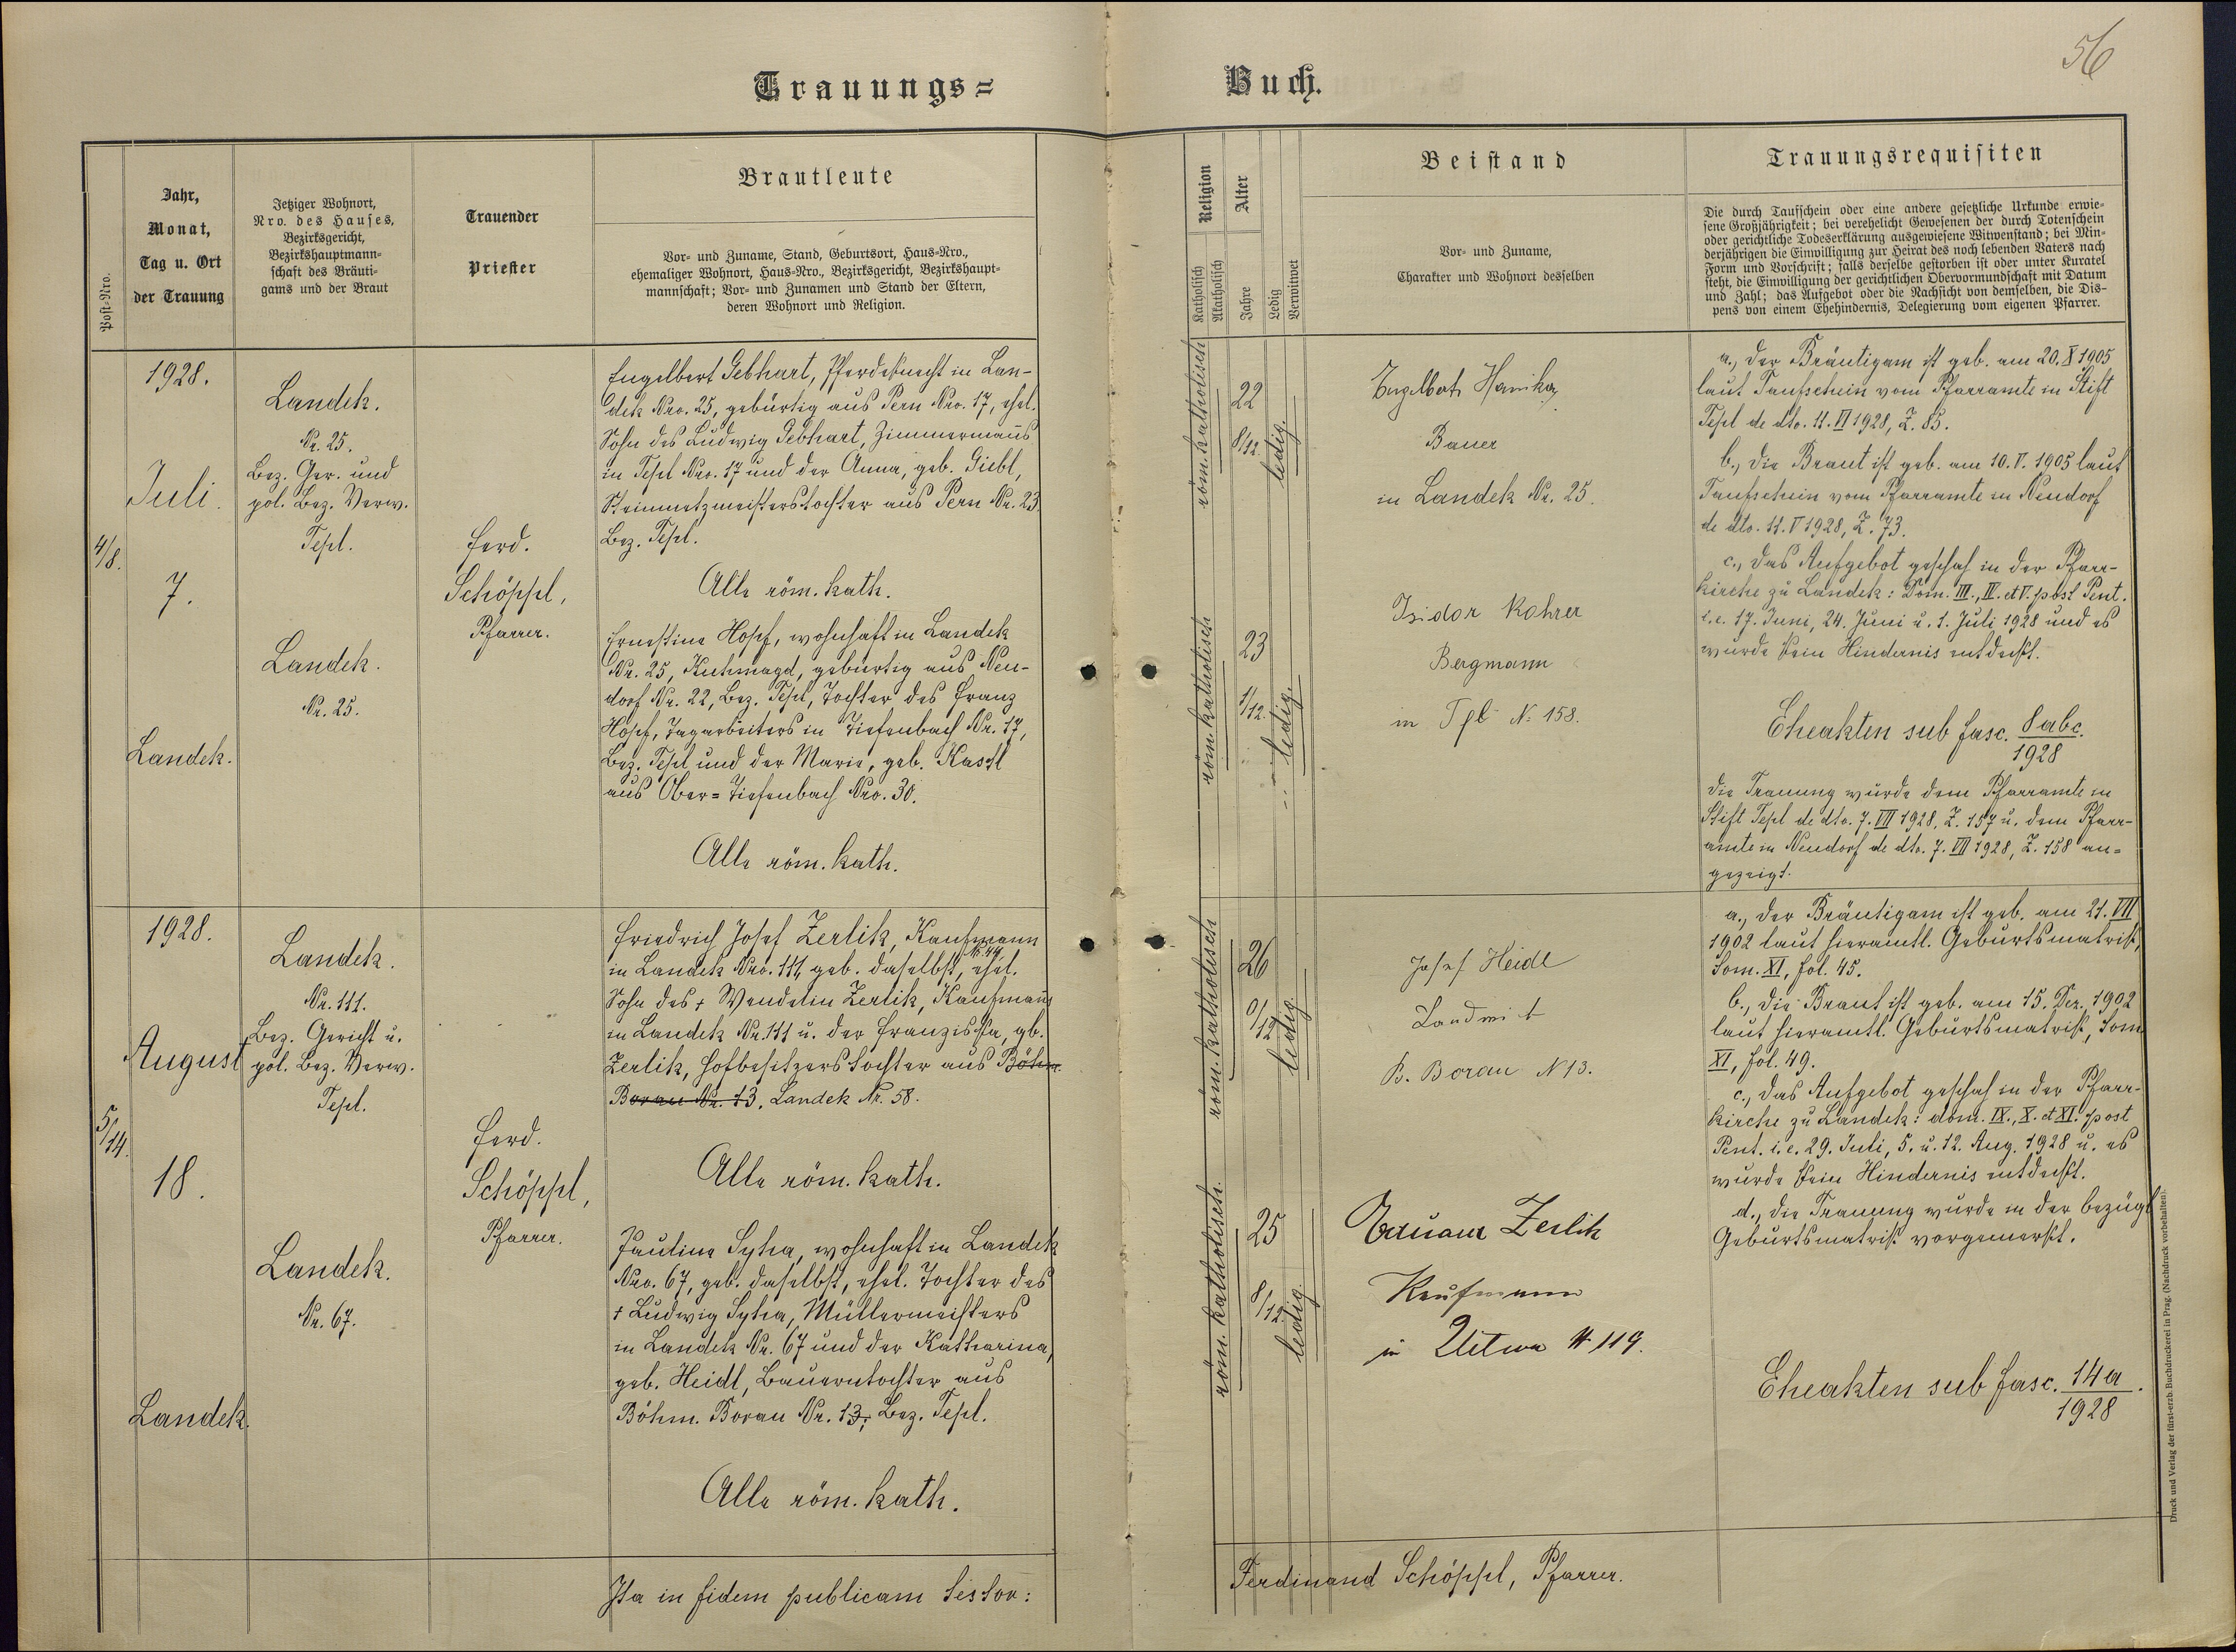 56
Trauungs=
Buch.
Post=Nro.
Jahr,
Monat,
Tag u. Ort
der Trauung
Jetziger Wohnort,
Nro. des Hauses,
Bezirksgericht,
Bezirkshauptmann-
schaft des Bräuti-
gams und der Braut
Trauender
Priester
Brautleute
Vor- und Zuname, Stand, Geburtsort, Haus-Nro.,
ehemaliger Wohnort, Haus-Nro., Bezirksgericht, Bezirkshaupt-
mannschaft; Vor- und Zunamen und Stand der Eltern,
deren Wohnort und Religion.
Religion
Katholisch
Akatholisch
Alter
Jahre
Ledig
Verwitwet
Beistand
Vor- und Zuname,
Charakter und Wohnort desselben
Trauungsrequisiten
Die durch Taufschein oder eine andere gesetzliche Urkunde erwie-
sene Großjährigkeit; bei verehelicht Gewesenen der durch Totenschein
oder gerichtliche Todeserklärung ausgewiesene Witwenstand; bei Min-
derjährigen die Einwilligung zur Heirat des noch lebenden Vaters nach
Form und Vorschrift; falls derselbe gestorben ist oder unter Kuratel
steht, die Einwilligung der gerichtlichen Obervormundschaft mit Datum
und Zahl; das Aufgebot oder die Nachsicht von demselben, die Dis-
pens von einem Ehehindernis, Delegierung vom eigenen Pfarrer.
4/8.
1928.
Juli.
7.
Landek.
Landek.
Nr. 25.
Bez. Ger. und
pol. Bez. Verw.
Tepl.
Landek.
Nr. 25.
Ferd.
Schöppl,
Pfarrer.
Engelbert Gebhart, Pferdeknecht in Lan-
dek Nro. 25, gebürtig aus Pern Nro. 17, ehel.
Sohn des Ludwig Gebhart, Zimmermanns
in Tepl Nro. 17 und der Anna, geb. Giebl,
Steinmetzmeisterstochter aus Pern Nr. 23
Bez. Tepl.
Alle röm. kath.
Ernestine Hopf, wohnhaft in Landek
Nr. 25, Kuhmagd, gebürtig aus Neu-
dorf Nr. 22, Bez. Tepl, Tochter des Franz
Hopf, Tagarbeiters in Tiefenbach Nr. 17,
Bez. Tepl und der Marie, geb. Kastl
aus Ober=Tiefenbach Nro. 30.
Alle röm. kath.
röm. katholisch
22
8/12.
ledig.
röm. katholisch
23
1/12.
ledig.
Engelbert Hanika
Bauer
in Landek Nr. 25.
Isidor Rohrer
Bergmann
in Tpl № 158.
a., Der Bräutigam ist geb. am 20. X 1905
laut Taufschein vom Pfarramte in Stift
Tepl de dto. 11. VI 1928, Z. 85.
b., Die Braut ist geb. am 10. V. 1905 laut
Taufschein vom Pfarramte in Neudorf
de dto. 11. V 1928, Z. 73.
c., Das Aufgebot geschah in der Pfarr-
kirche zu Landek: Dom. III., IV. et V. post Pent.
i.e. 17. Juni, 24. Juni u. 1. Juli 1928 und es
wurde kein Hindernis entdeckt.
Eheakten sub fasc. 8abc.
1928
Die Trauung wurde dem Pfarramte in
Stift Tepl de dto. 7. VII 1928, Z. 157 u. dem Pfarr-
amte in Neudorf de dto. 7. VII 1928, Z. 158 an=
gezeigt.
5/14.
1928.
August
18.
Landek.
Landek.
Nr. 111.
Bez. Gericht u.
pol. Bez. Verw.
Tepl.
Landek.
Nr. 67.
Ferd.
Schöppl,
Pfarrer.
Friedrich Josef Zerlik, Kaufmann
in Landek Nro. 111, geb. daselbst, Nr. 44, ehel.
Sohn des + Wendelin Zerlik, Kaufmanns
in Landek Nr. 111 u. der Franziska, gb.
Zerlik, Hofbesitzerstochter aus Böhm.
Borau Nr. 13. Landek Nr. 58.
Alle röm. kath.
Pauline Syha, wohnhaft in Landek
Nro. 67, geb. daselbst, ehel. Tochter des
+ Ludwig Syha, Müllermeisters
in Landek Nr. 67 und der Katharina,
geb. Heidl, Bauerntochter aus
Böhm. Borau Nr. 13, Bez. Tepl.
Alle röm. kath.
röm. katholisch
26
0/12
ledig.
röm. katholisch.
25
8/12
ledig.
Josef Heidl
Landwirt
B. Borau N 13.
Eduard Zerlik
Kaufmann
in Uitwa № 119.
a., Der Bräutigam ist geb. am 21. VII
1902 laut hieramtl. Geburtsmatrik,
Tom. XI, fol. 45.
b., Die Braut ist geb. am 15. Dez. 1902
laut hieramtl. Geburtsmatrik, Tom
XI, fol. 49.
c., Das Aufgebot geschah in der Pfarr-
kirche zu Landek: dom. IX., X. et XI. post
Pent. i.e. 29. Juli, 5. u. 12. Aug. 1928 u. es
wurde kein Hindernis entdeckt.
d., Die Trauung wurde in der bezügl
Geburtsmatrik vorgemerkt.
Eheakten sub fasc. 14a.
1928
Ita in fidem publicam testor:
Ferdinand Schöppl, Pfarrer.
Druck und Verlag der fürst-erzb. Buchdruckerei in Prag. (Nachdruck vorbehalten).